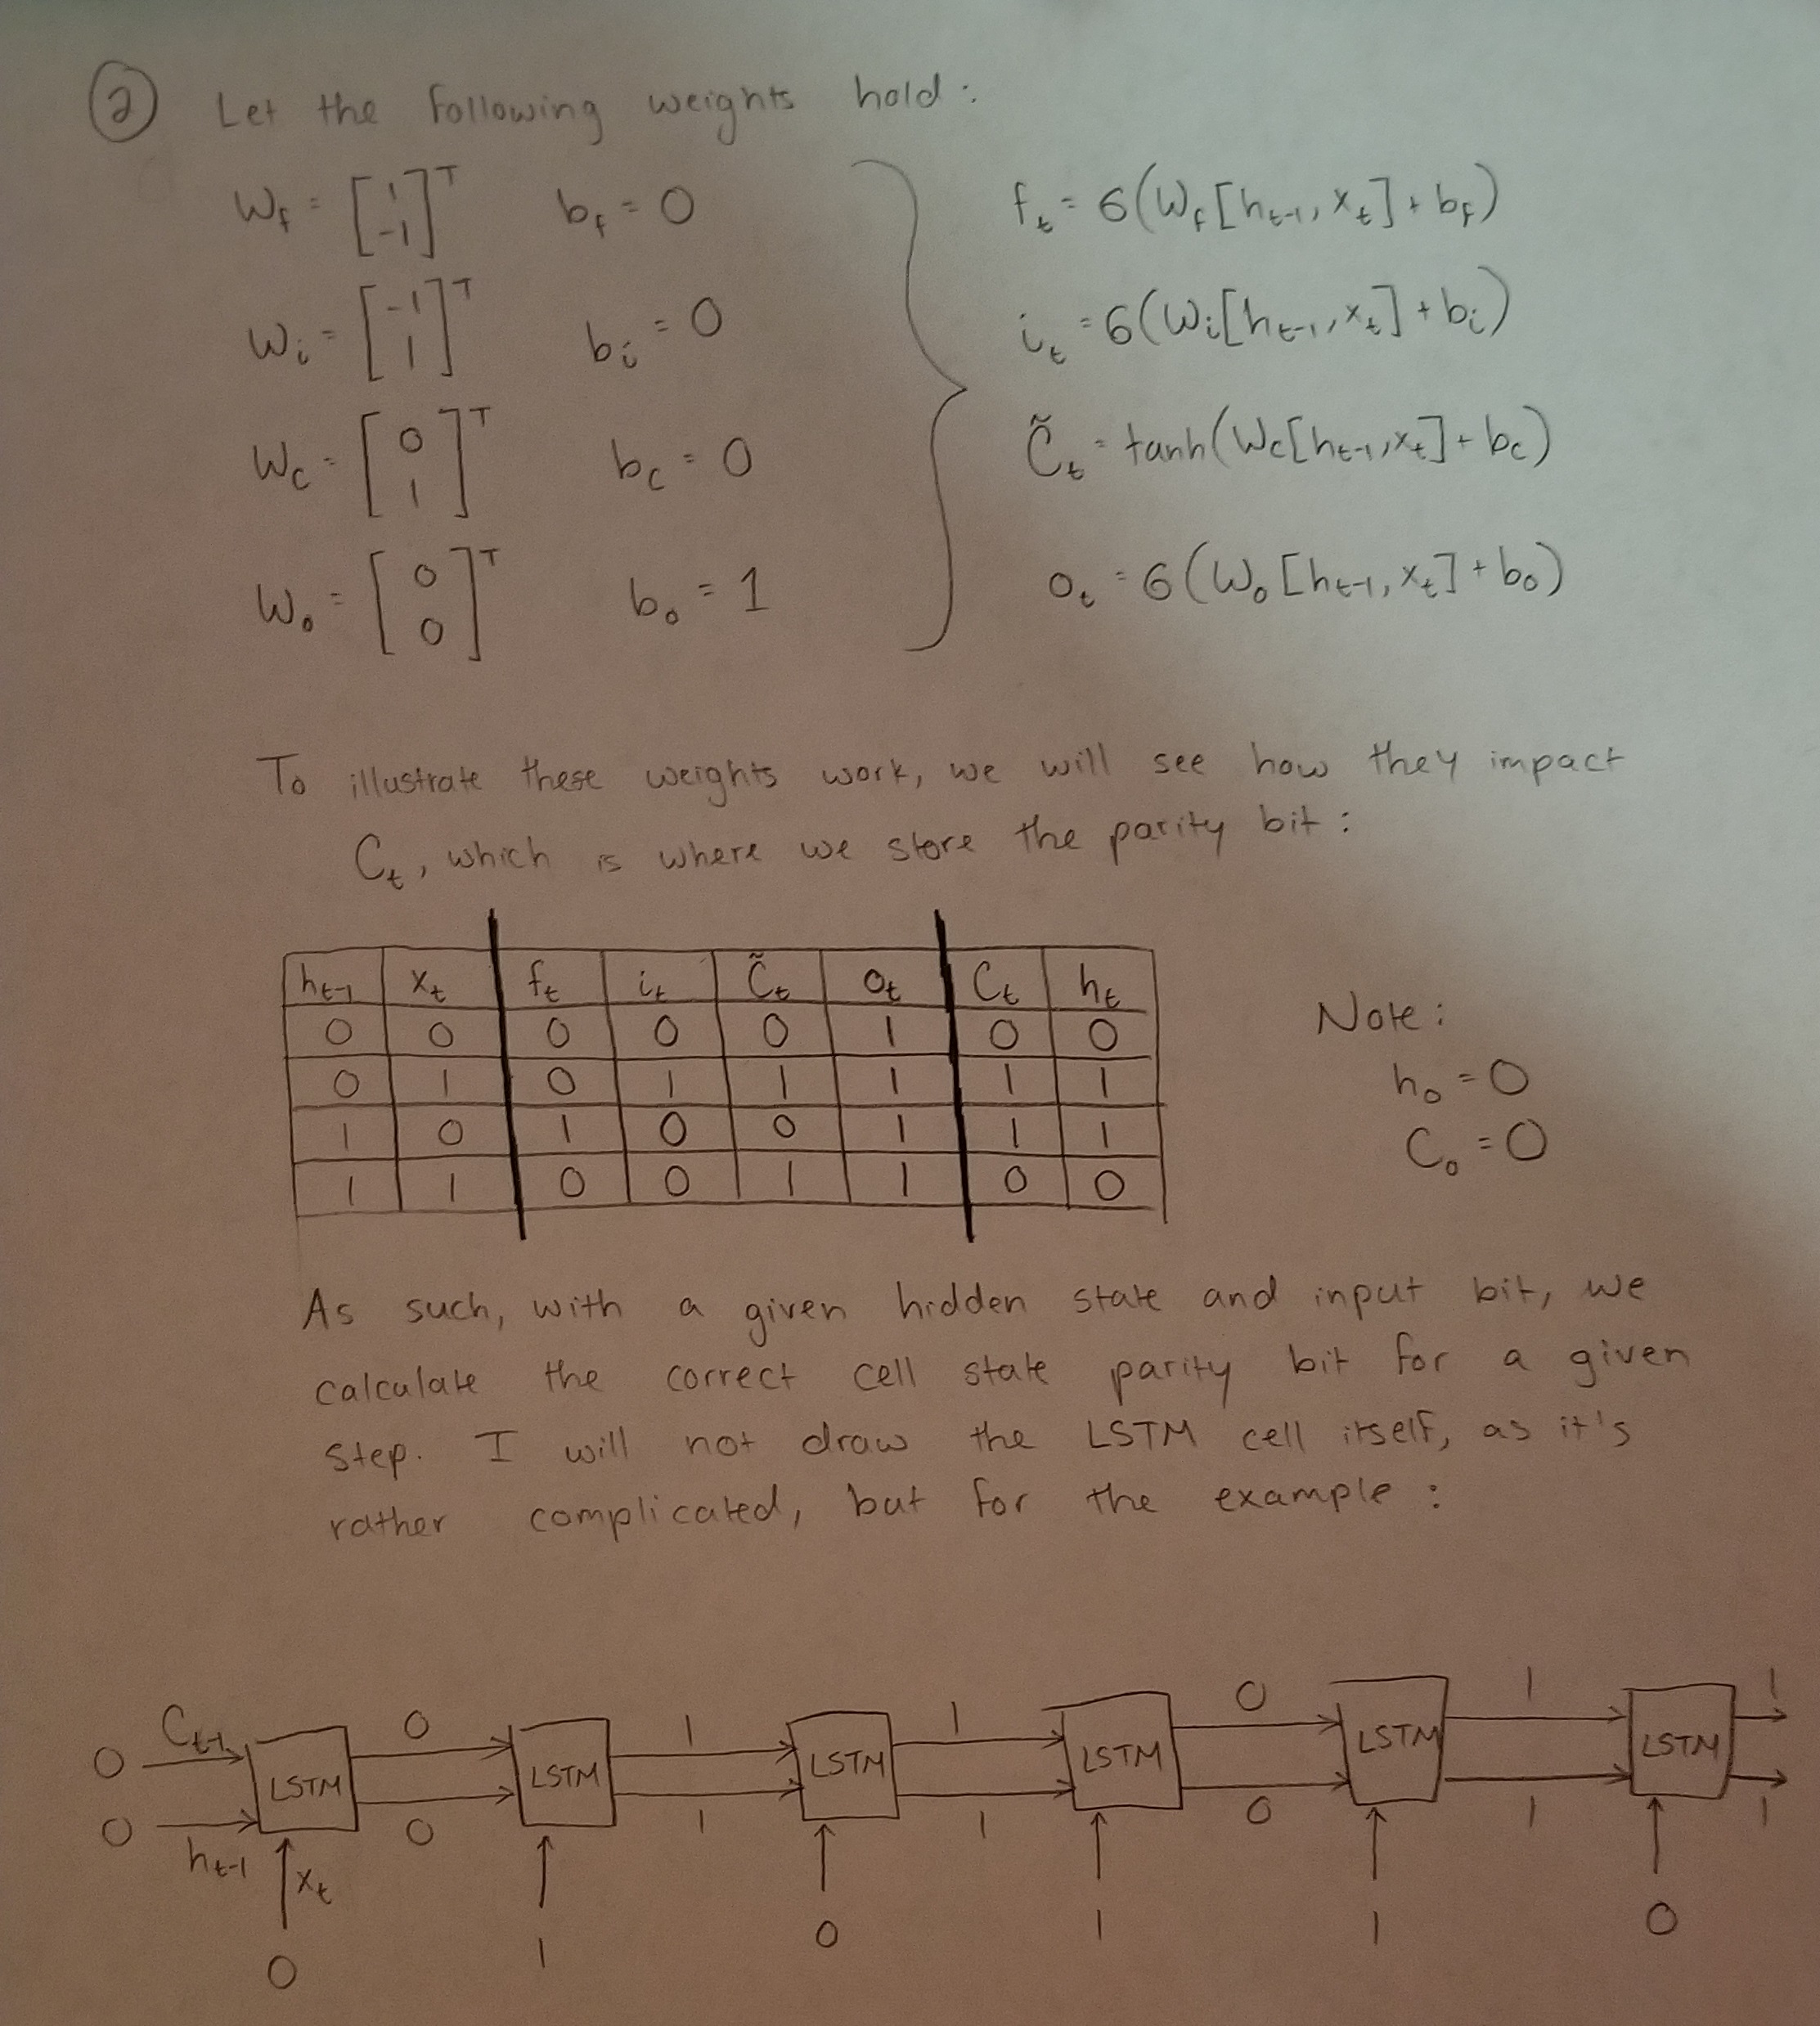 ② Let the following weights hold:
W_f = [1 -1]^T b_f = 0 f_t = σ(W_f[h_{t-1}, x_t] + b_f)
W_i = [-1 1]^T b_i = 0 i_t = σ(W_i[h_{t-1}, x_t] + b_i)
W_c = [0 1]^T b_c = 0 C̃_t = tanh(W_c[h_{t-1}, x_t] + b_c)
W_o = [0 0]^T b_o = 1 o_t = σ(W_o[h_{t-1}, x_t] + b_o)
To illustrate these weights work, we will see how they impact
C_t, which is where we store the parity bit:
h_{t-1} x_t f_t i_t C̃_t o_t C_t h_t
0 0 0 0 0 1 0 0
0 1 0 1 1 1 1 1
1 0 1 0 0 1 1 1
1 1 0 0 1 1 0 0
Note:
h_0 = 0
C_0 = 0
As such, with a given hidden state and input bit, we
calculate the correct cell state parity bit for a given
step. I will not draw the LSTM cell itself, as it's
rather complicated, but for the example:
0 C_{t-1} 0 1 1 0 1 1
LSTM LSTM LSTM LSTM LSTM LSTM
0 h_{t-1} 0 1 1 0 1 1
x_t
0 1 0 1 1 0